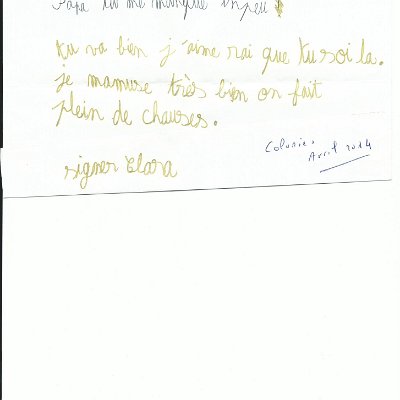 Papa tu me manque unpeu !
tu va bien j'aime rai que tu soi la.
je mamuse très bien on fait
plein de chauses.
signer Clara
Colonie.
Avril 2014